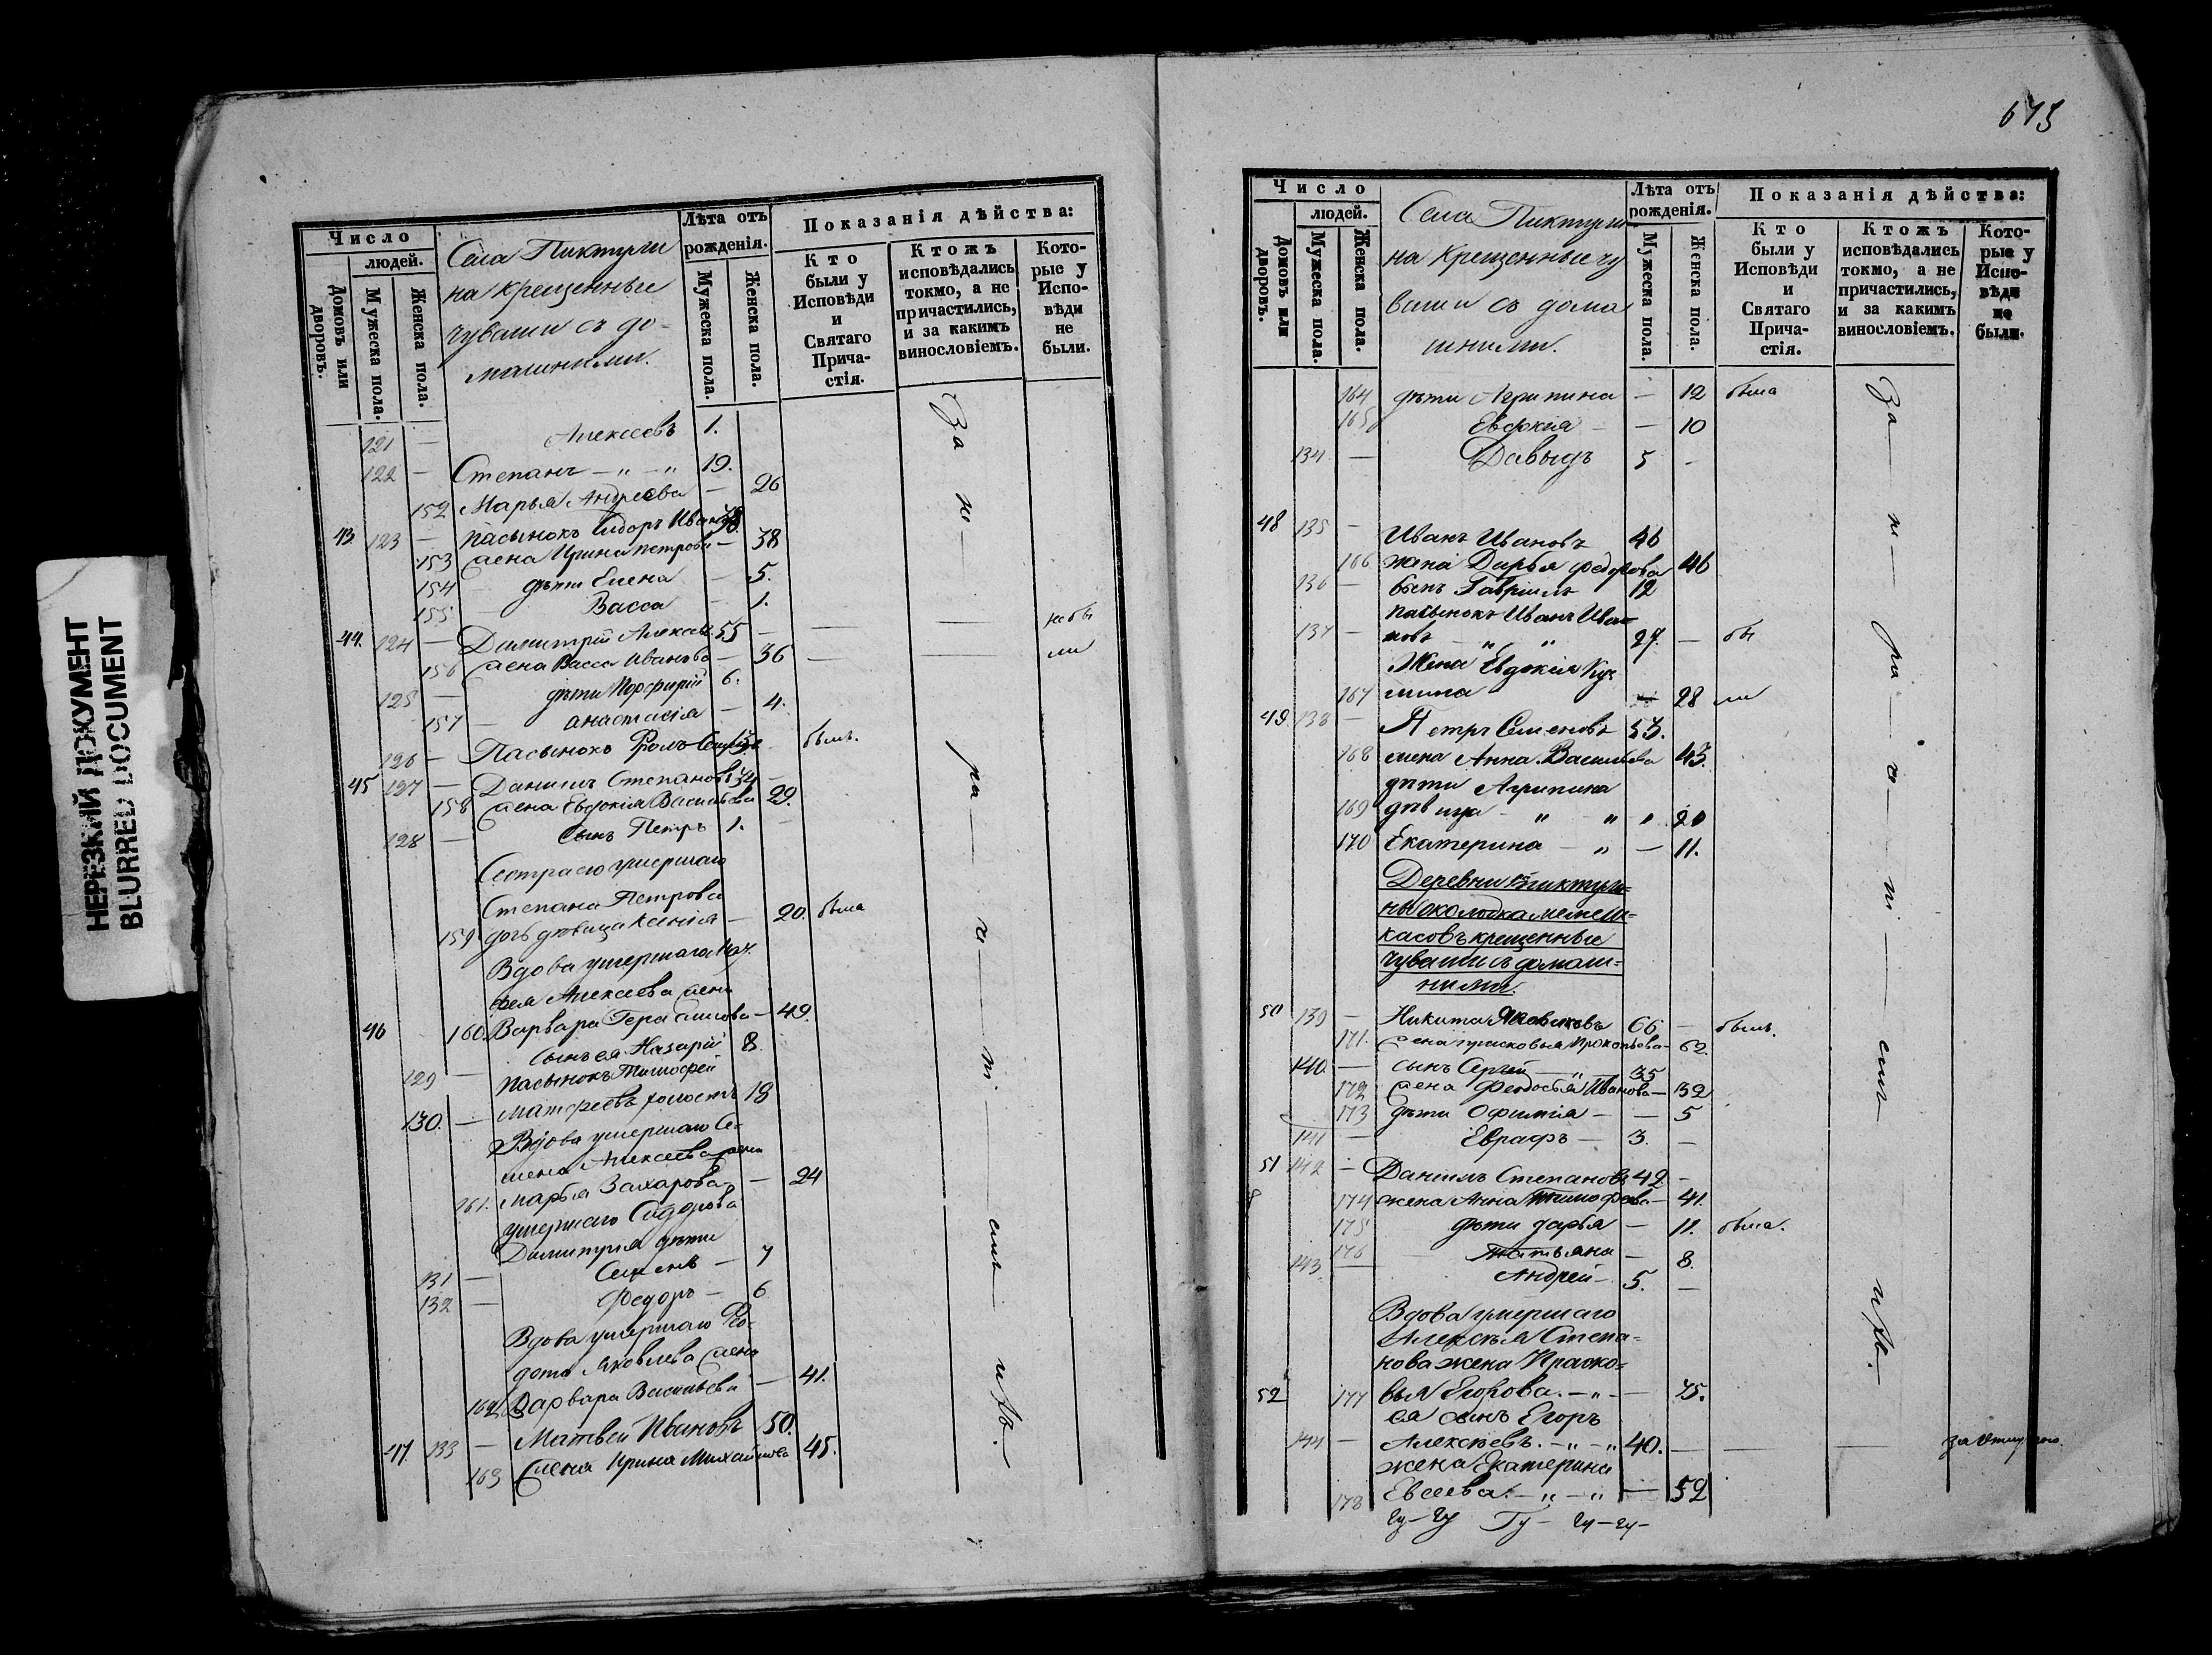 НЕРЕЗКИЙ ДОКУМЕНТ
BLURRED DOCUMENT
Число
людей.
Домовъ или дворовъ.
Мужеска пола.
Женска пола.
Села Пиктули
на крещенные
чуваши съ до=
машними.
Лѣта отъ рожденія.
Мужеска пола.
Женска пола.
Показанія дѣйства:
Кто были у Исповѣди и Святаго Прича-стія.
Ктожъ исповѣдались токмо, а не причастились, и за какимъ винословіемъ.
Кото-рые у Испо-вѣди не были.
121 — Алексеевъ 1.
122 — Степанъ — " — " 19.
152 Марья Андреева — 26
43. 123 — пасынокъ Сидоръ 38.
153 жена Ирина Петрова — 38
154 дѣти Елена — 5.
155 Васса — 1.
44. 124 — Димитрій 55 — не бы
156 жена Васса Иванова — 36 — ли
125 — дѣти Порфирій 6.
157 — анастасія — 4.
126 — Пасынокъ былъ.
45 127 — Даниилъ Степановъ 34 —
158 жена Евдокія Васильева 29.
128 — сынъ Петръ 1. —
Сестра его умершаго
Степана Петрова
159 дочь дѣвица Ксенія — 20. была
Вдова умершаго
Алексеева жена
46 160 Варвара Герасимова — 49.
129 — сынъ ея Назарій 8
пасынокъ Тимофей
130. — Матфеевъ холостъ 18
Вдова умершаго Се=
мена Алексеева жена
161. марья Захарова — 24
умершаго Сидорова
Димитрія дѣти
131 — Семенъ — 7
132 — Федоръ — 6
Вдова умершаго Фео=
дота Яковлева жена
162 Варвара Васильева — 41.
47. 133 — Матвей Ивановъ 50.
163 жена Ирина Михайлова 45.
675
Число
людей.
Домовъ или дворовъ.
Мужеска пола.
Женска пола.
Села Пиктули
на Крещенные чу
ваши съ дома
шними.
Лѣта отъ рожденія.
Мужеска пола.
Женска пола.
Показанія дѣйства:
Кто были у Исповѣди и Святаго Прича-стія.
Ктожъ исповѣдались токмо, а не причастились, и за какимъ винословіемъ.
Кото-рые у Испо-вѣди не были.
164 дѣти Агрипина — 12 была
165 Евдокія — — 10
134 — Давыдъ 5 —
48 135 — Иванъ Ивановъ 46
166 жена Дарья Федорова 46
136 — сынъ Гавріилъ 12
пасынокъ Иванъ Ива=
137 — новъ " " 27. — бы
Жена Евдокія Ку=
167 мина — 28 ли
49. 138 — Петръ Семеновъ 53.
168 жена Анна Васильева 43.
дѣти Агрипина
169 дѣвица — " — " " 20
170 Екатерина — " — 11.
Деревни Пиктули=
ны околодка
касовъ крещенные
чуваши съ домаш=
ними.
50 139 — Никита Яковлевъ 66 — былъ.
171. жена Прокопьева — 62.
140. — сынъ Сергей — " — 35
172 жена Федосья Иванова — 32
173 дѣти Офимія — — 5
141 — Еврафъ — 3. —
51 142 — Даніилъ Степановъ 42 —
174 жена Анна Тимофеева — 41.
175 дѣти дарья — 11. была.
176 Татьяна — 8.
143 — Андрей — 5. —
Вдова умершаго
Алексѣя Степа=
нова жена Праско=
52 177 вья Егорова. — " — — 75.
ея сынъ Егоръ
144 — Алексѣевъ. — " — " 40. —
жена Екатерина
178 Евсеева. — " — " — 52